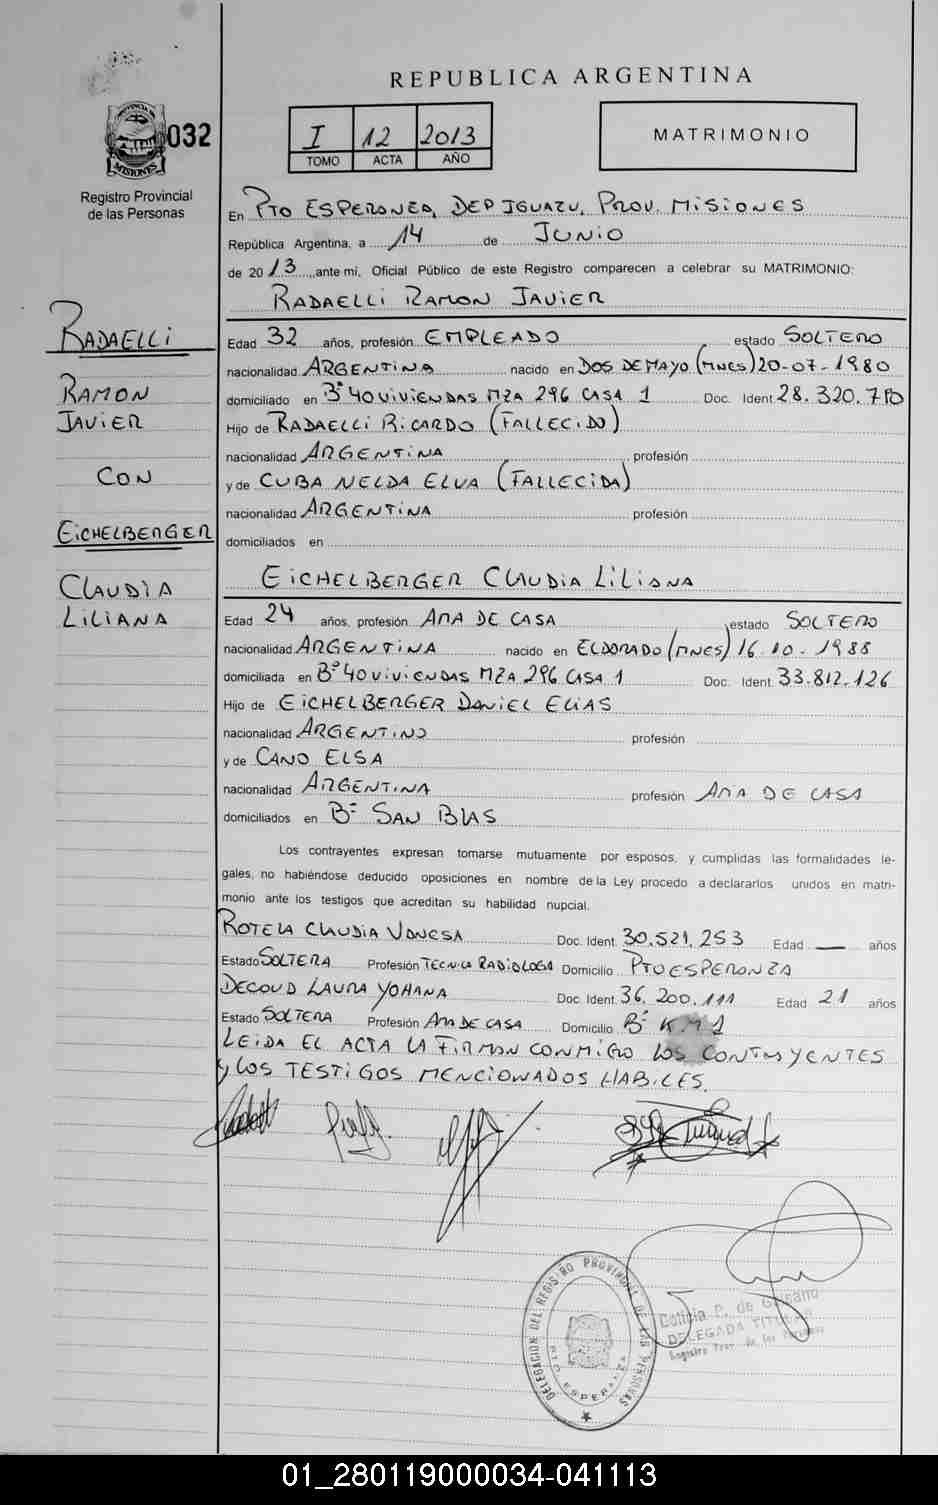 REPUBLICA ARGENTINA
PROVINCIA DE
MISIONES
032
Registro Provincial
de las Personas
I 12 2013
TOMO ACTA AÑO
MATRIMONIO
En PTO ESPERANZA, DEP IGUAZU, PROV. MISIONES
República Argentina, a 14 de JUNIO
de 2013, ante mí, Oficial Público de este Registro comparecen a celebrar su MATRIMONIO:
RADAELLI RAMON JAVIER
RADAELLI
RAMON
JAVIER
CON
EICHELBERGER
CLAUDIA
LILIANA
Edad 32 años, profesión EMPLEADO estado SOLTERO
nacionalidad ARGENTINA nacido en DOS DE MAYO (MNES) 20-07-1980
domiciliado en B° 40 VIVIENDAS MZA 296 CASA 1 Doc. Ident 28.320.710
Hijo de RADAELLI RICARDO (FALLECIDO)
nacionalidad ARGENTINA profesión
y de CUBA NELDA ELVA (FALLECIDA)
nacionalidad ARGENTINA profesión
domiciliados en
EICHELBERGER CLAUDIA LILIANA
Edad 24 años, profesión AMA DE CASA estado SOLTERO
nacionalidad ARGENTINA nacido en ELDORADO (MNES) 16.10.1988
domiciliada en B° 40 VIVIENDAS MZA 296 CASA 1 Doc. Ident. 33.812.126
Hijo de EICHELBERGER DANIEL ELIAS
nacionalidad ARGENTINO profesión
y de CANO ELSA
nacionalidad ARGENTINA profesión AMA DE CASA
domiciliados en B° SAN BLAS
Los contrayentes expresan tomarse mutuamente por esposos, y cumplidas las formalidades le-
gales, no habiéndose deducido oposiciones en nombre de la Ley procedo a declararlos unidos en matri-
monio ante los testigos que acreditan su habilidad nupcial.
ROTELA CLAUDIA VANESA Doc. Ident. 30.521.253 Edad — años
Estado SOLTERA Profesión TECNICA RADIOLOGA Domicilio PTO ESPERANZA
DECOUD LAURA YOHANA Doc. Ident. 36.200.111 Edad 21 años
Estado SOLTERA Profesión AMA DE CASA Domicilio B° KM 1
LEIDA EL ACTA LA FIRMAN CONMIGO LOS CONTRAYENTES
y LOS TESTIGOS MENCIONADOS HABILES.
DELEGACION DEL REGISTRO PROVINCIAL DE LAS PERSONAS
PTO. ESPERANZA
P. de
DELEGADA TITULAR
Registro Prov. de las Personas
01_280119000034-041113